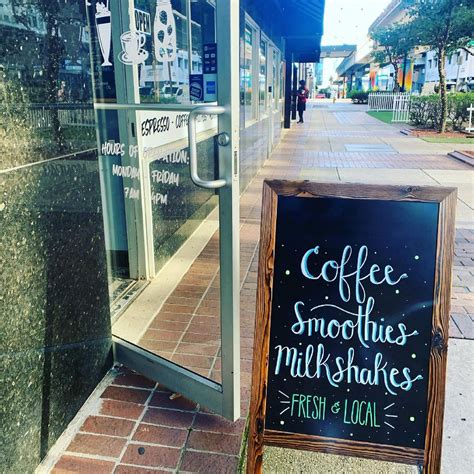 OPEN
ESPRESSO - COFFEE
HOURS OF OPERATION:
MONDAY FRIDAY
7AM 6PM
Coffee
Smoothies
Milkshakes
FRESH & LOCAL